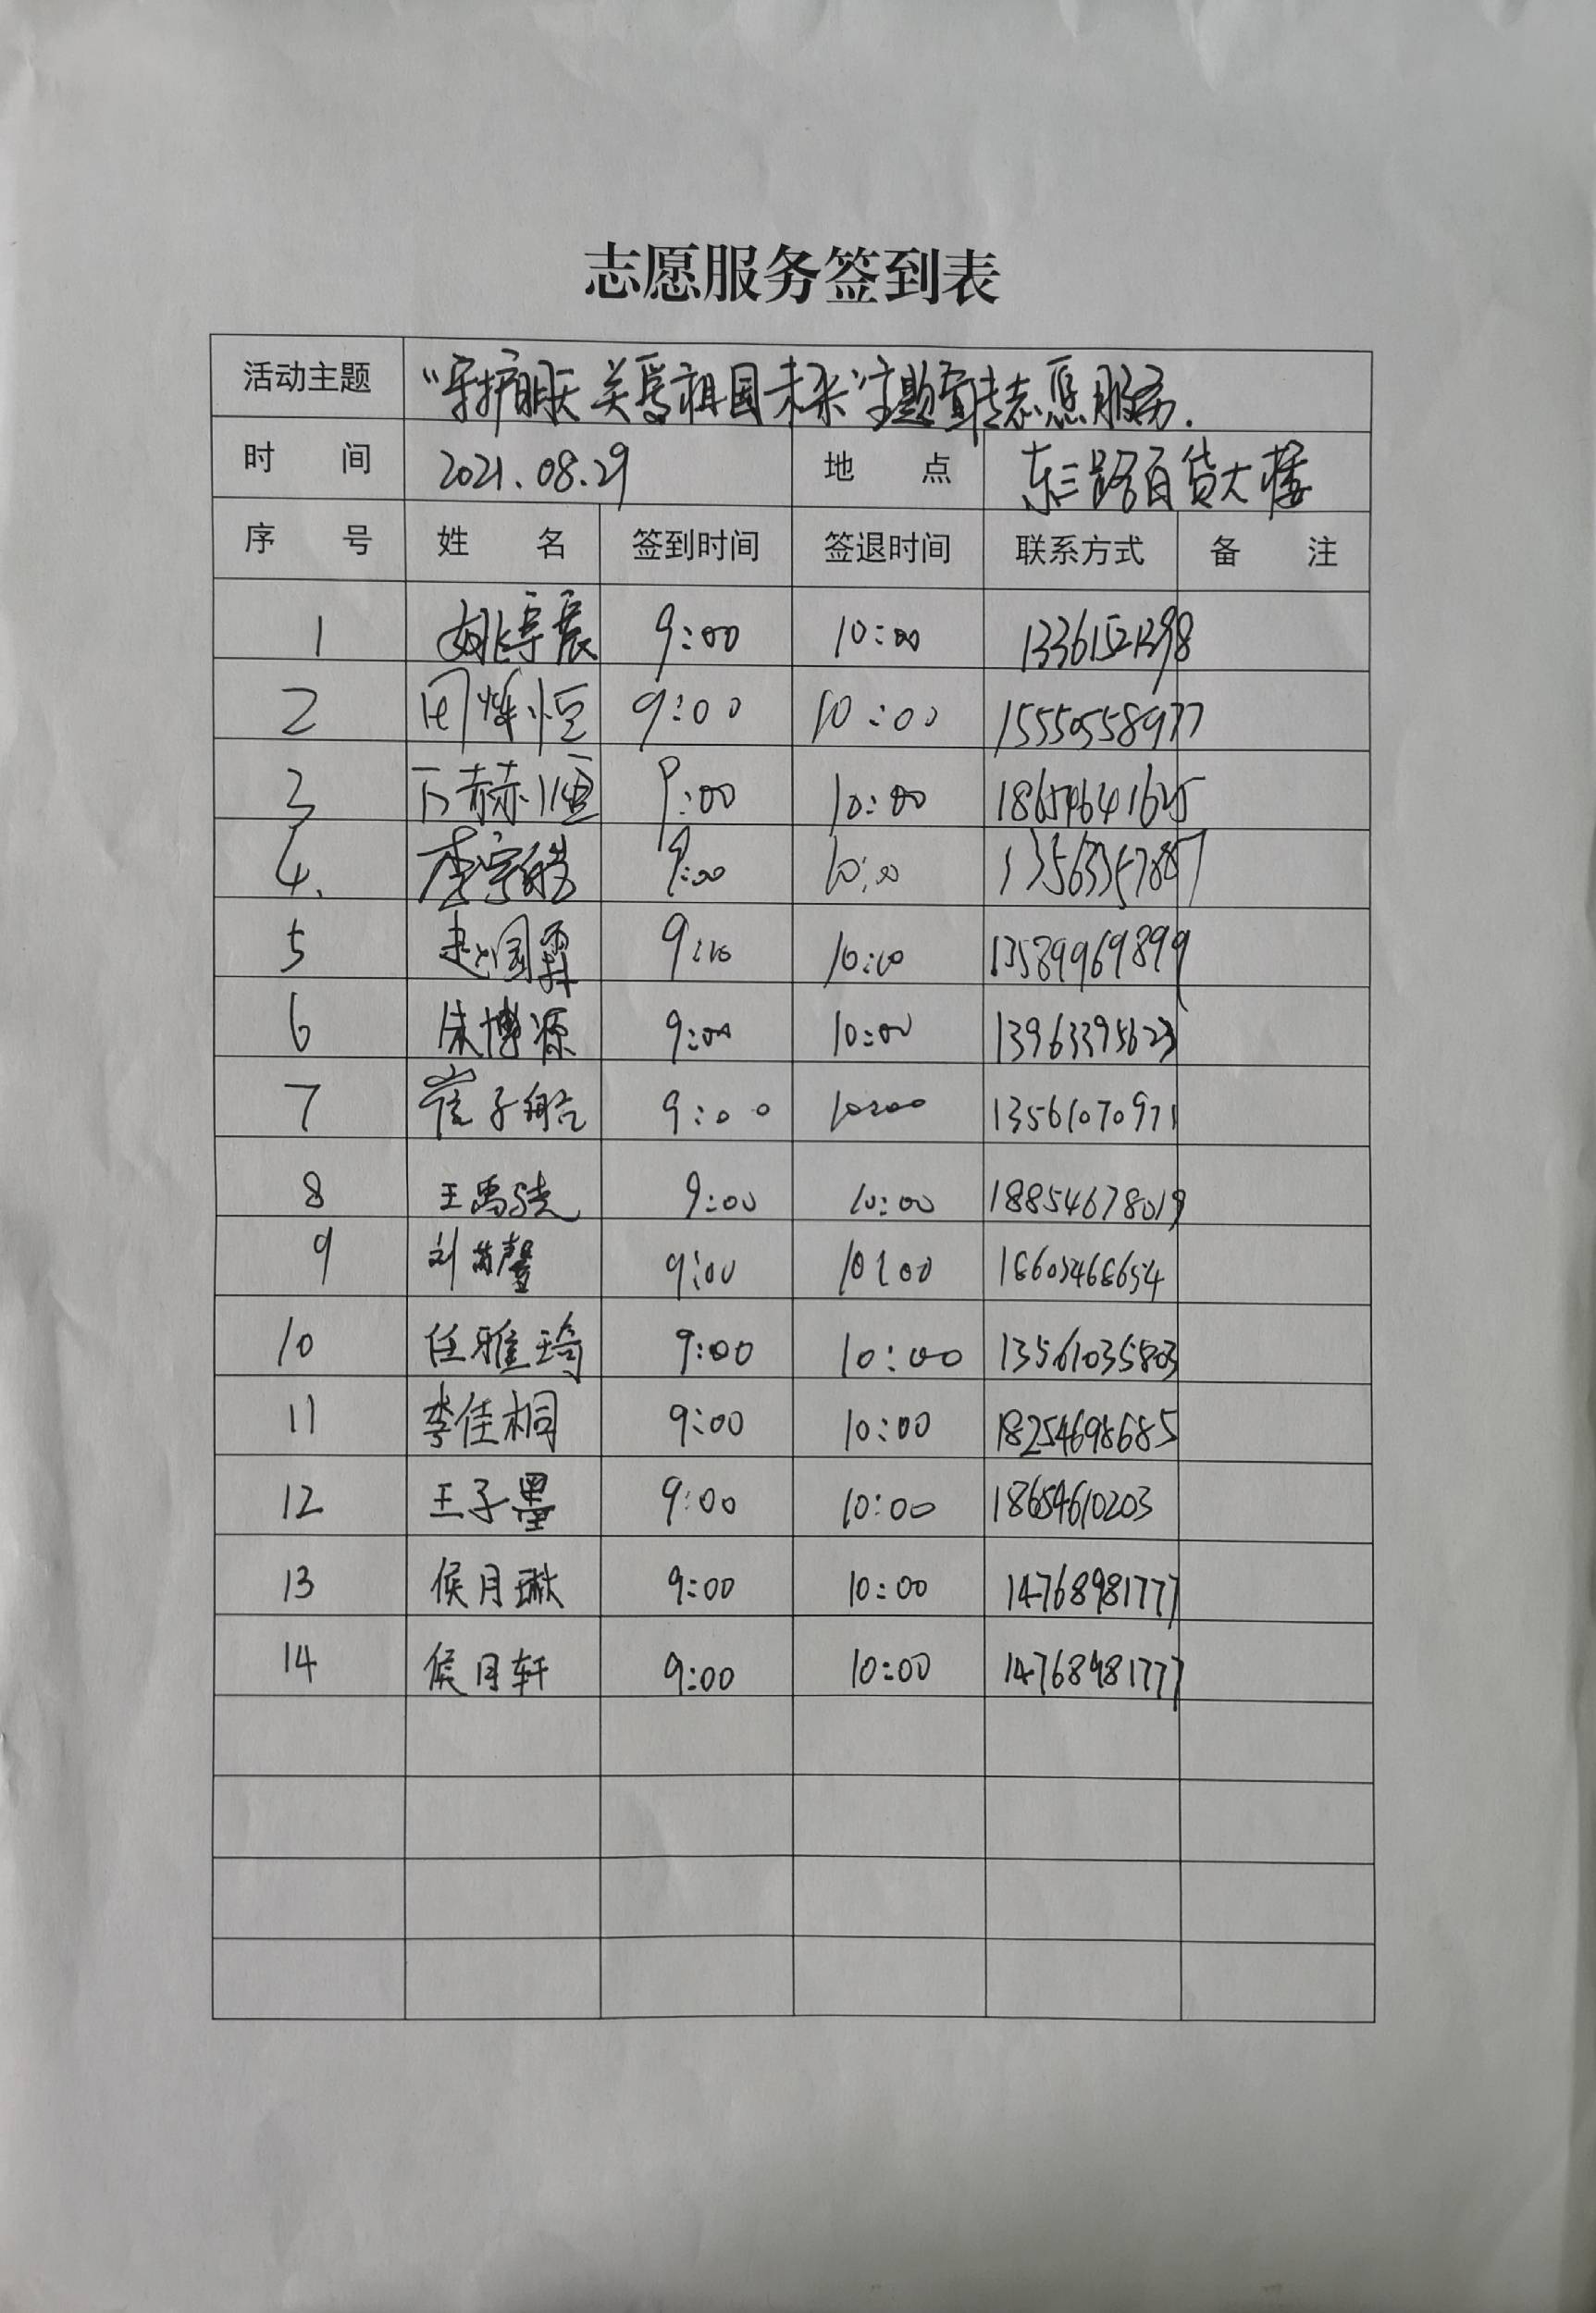 志愿服务签到表
活动主题 "守护明天 关爱祖国未来"主题宣传志愿服务.
时 间 2021.08.29 地 点 东三路百货大楼
序 号 姓 名 签到时间 签退时间 联系方式 备 注
1 姚宇宸 9:00 10:00
2 周烨恒 9:00 10:00 15550558977
3 9:00 10:00 18654641625
4. 李宇皓 9:00 10:00
5 赵国霖 10:00 13589969899
6 朱博源 9:00 10:00 13963395623
7 崔子船 9:00 10:00 13561070971
8 王禹骁 9:00 10:00 18854678019
9 刘芮馨 9:00 10:00
10 任雅琦 9:00 10:00 13561035803
11 李佳桐 9:00 10:00 18254698685
12 王子墨 9:00 10:00 18654610203
13 侯月琳 9:00 10:00 14768981777
14 侯月轩 9:00 10:00 14768981777